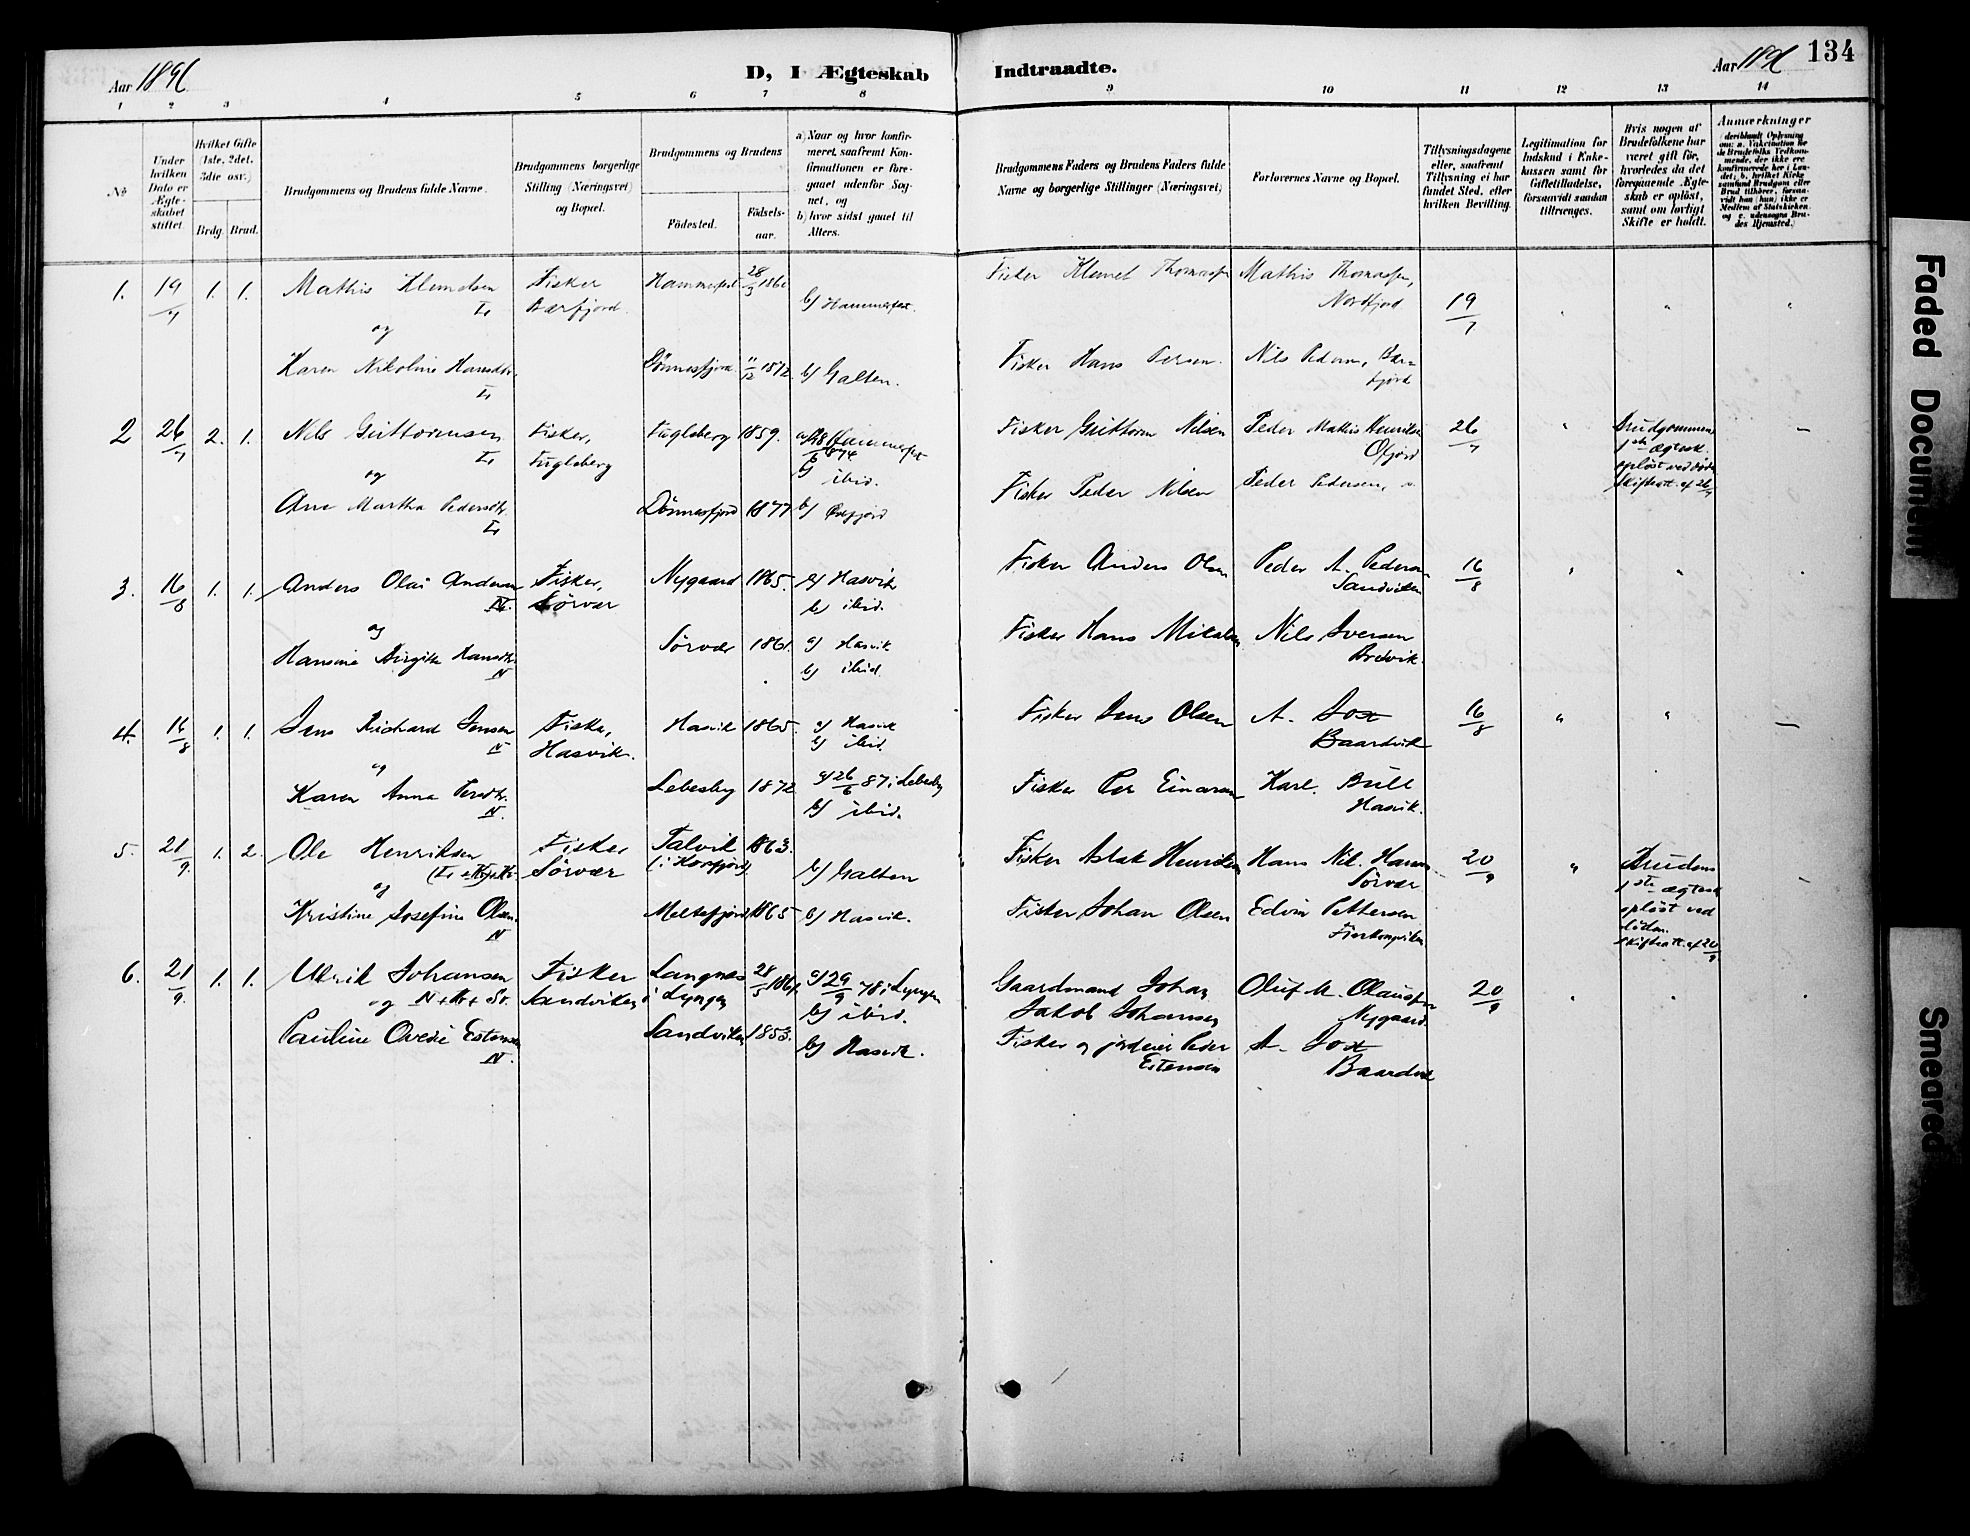 Aar 1896
D, I Ægteskab
Indtraadte.
Aar 1896
134
1 2 3 4 5 6 7 8 9 10 11 12 13 14
No
Under hvilken Dato er Ægteskabet stiftet
Hvilket Gifte (1ste, 2det, 3die osv.)
Brdg. Brud.
Brudgommens og Brudens fulde Navne.
Brudgommens borgerlige Stilling (Næringsvei) og Bopæl.
Brudgommens og Brudens
Födested.
Födsels-aar.
a) Naar og hvor konfirmeret, saafremt Konfirmationen er foregaaet udenfor Sognet, og
b) hvor sidst gaaet til Alters.
Brudgommens Faders og Brudens Faders fulde Navne og borgerlige Stillinger (Næringsvei)
Forlovernes Navne og Bopæl.
Tillysningsdagene eller, saafremt Tillysning ei har fundet Sted, efter hvilken Bevilling.
Legitimation for Indskud i Enkekassen samt for Giftetilladelse, forsaavidt saadan tiltrænges.
Hvis nogen af Brudefolkene har været gift för, hvorledes da det foregaaende Ægteskab er oplöst, samt om lovligt Skifte er holdt.
Anmærkninger
1. 19/7 1. 1. Mathis Klemetsen L. Fisker Bærfjord. Hammerfest 28/3 b/ Hammerfest. Fisker Klemet Thomassen Mathis Thomassen, Nordfjord 19/7
og
Karen Nikoline Hansdtr. L. Dönnesfjord 11/12 1872. b/ Galten. Fisker Hans Persen. Nils Pedersen, Bærfjord
2 26/7 2. 1. Nils Guttormsen L. Fisker, Fuglsberg Fuglsberg 1859. Hammerfest b/ ibid. Fisker Guttorm Nilsen Peder Mathis Henriksen Ofjord 26/7 Brudgommens 1ste ægtesk. oplöst ved döden skifteatt. af 26/7
og
Ane Martha Pedersdtr. L. Dönnesfjord 1877 b/ Fisker Peder Nilsen Peder Pedersen,
3. 16/8 1. 1. Anders Olai Andersen N. Fisker, Sörvær Nygaard 1865. a/ Hasvik b/ ibid. Fisker Anders Olsen Peder A. Pedersen Sandviken 16/8
og
Hansine Birgitte Hansdtr. N Sörvær 1861. a/ Hasvik b/ ibid. Fisker Hans Mikalsen Nils Iversen Bredvik.
4. 16/8 1. 1. Jens Richard Jensen N Fisker, Hasvik. Hasvik 1865. a/ Hasvik b/ ibid. Fisker Jens Olsen A. Baardvik 16/8
og
Karen Anna Persdtr. N. Lebesby 1872 a/ 26/6 87 i Lebesby b/ ibid. Fisker Per Einarsen Karl Bull Hasvik.
5. 21/9. 1. 2. Ole Henriksen Fisker Sörvær Talvik (i Korsfjord) 1863. b/ Galten Fisker Aslak Henriksen Hans Nil. Hansen Sörvær 20/9 Brudens 1ste ægtesk. oplöst ved döden. skifteatt. af 20/9
og
Kristine Josefine Olsen. N Meltefjord 1865 b/ Hasvik. Fisker Johan Olsen Edvin Pettersen
6. 21/9. 1. 1. Ulrik Johansen Fisker Sandviken Langnes i Lyngen 28/5 1864. a/ 29/9 78 i Lyngen b/ ibid. Gaardmand Johan Jakob Johansen Oluf M. Olaussen Nygaard. 20/9
og
Pauline Ovedie Estensen N. Sandviken 1853. b/ Hasvik. Fisker og jordeier Peder Estensen A. Baardvik
Faded Document
Smeared